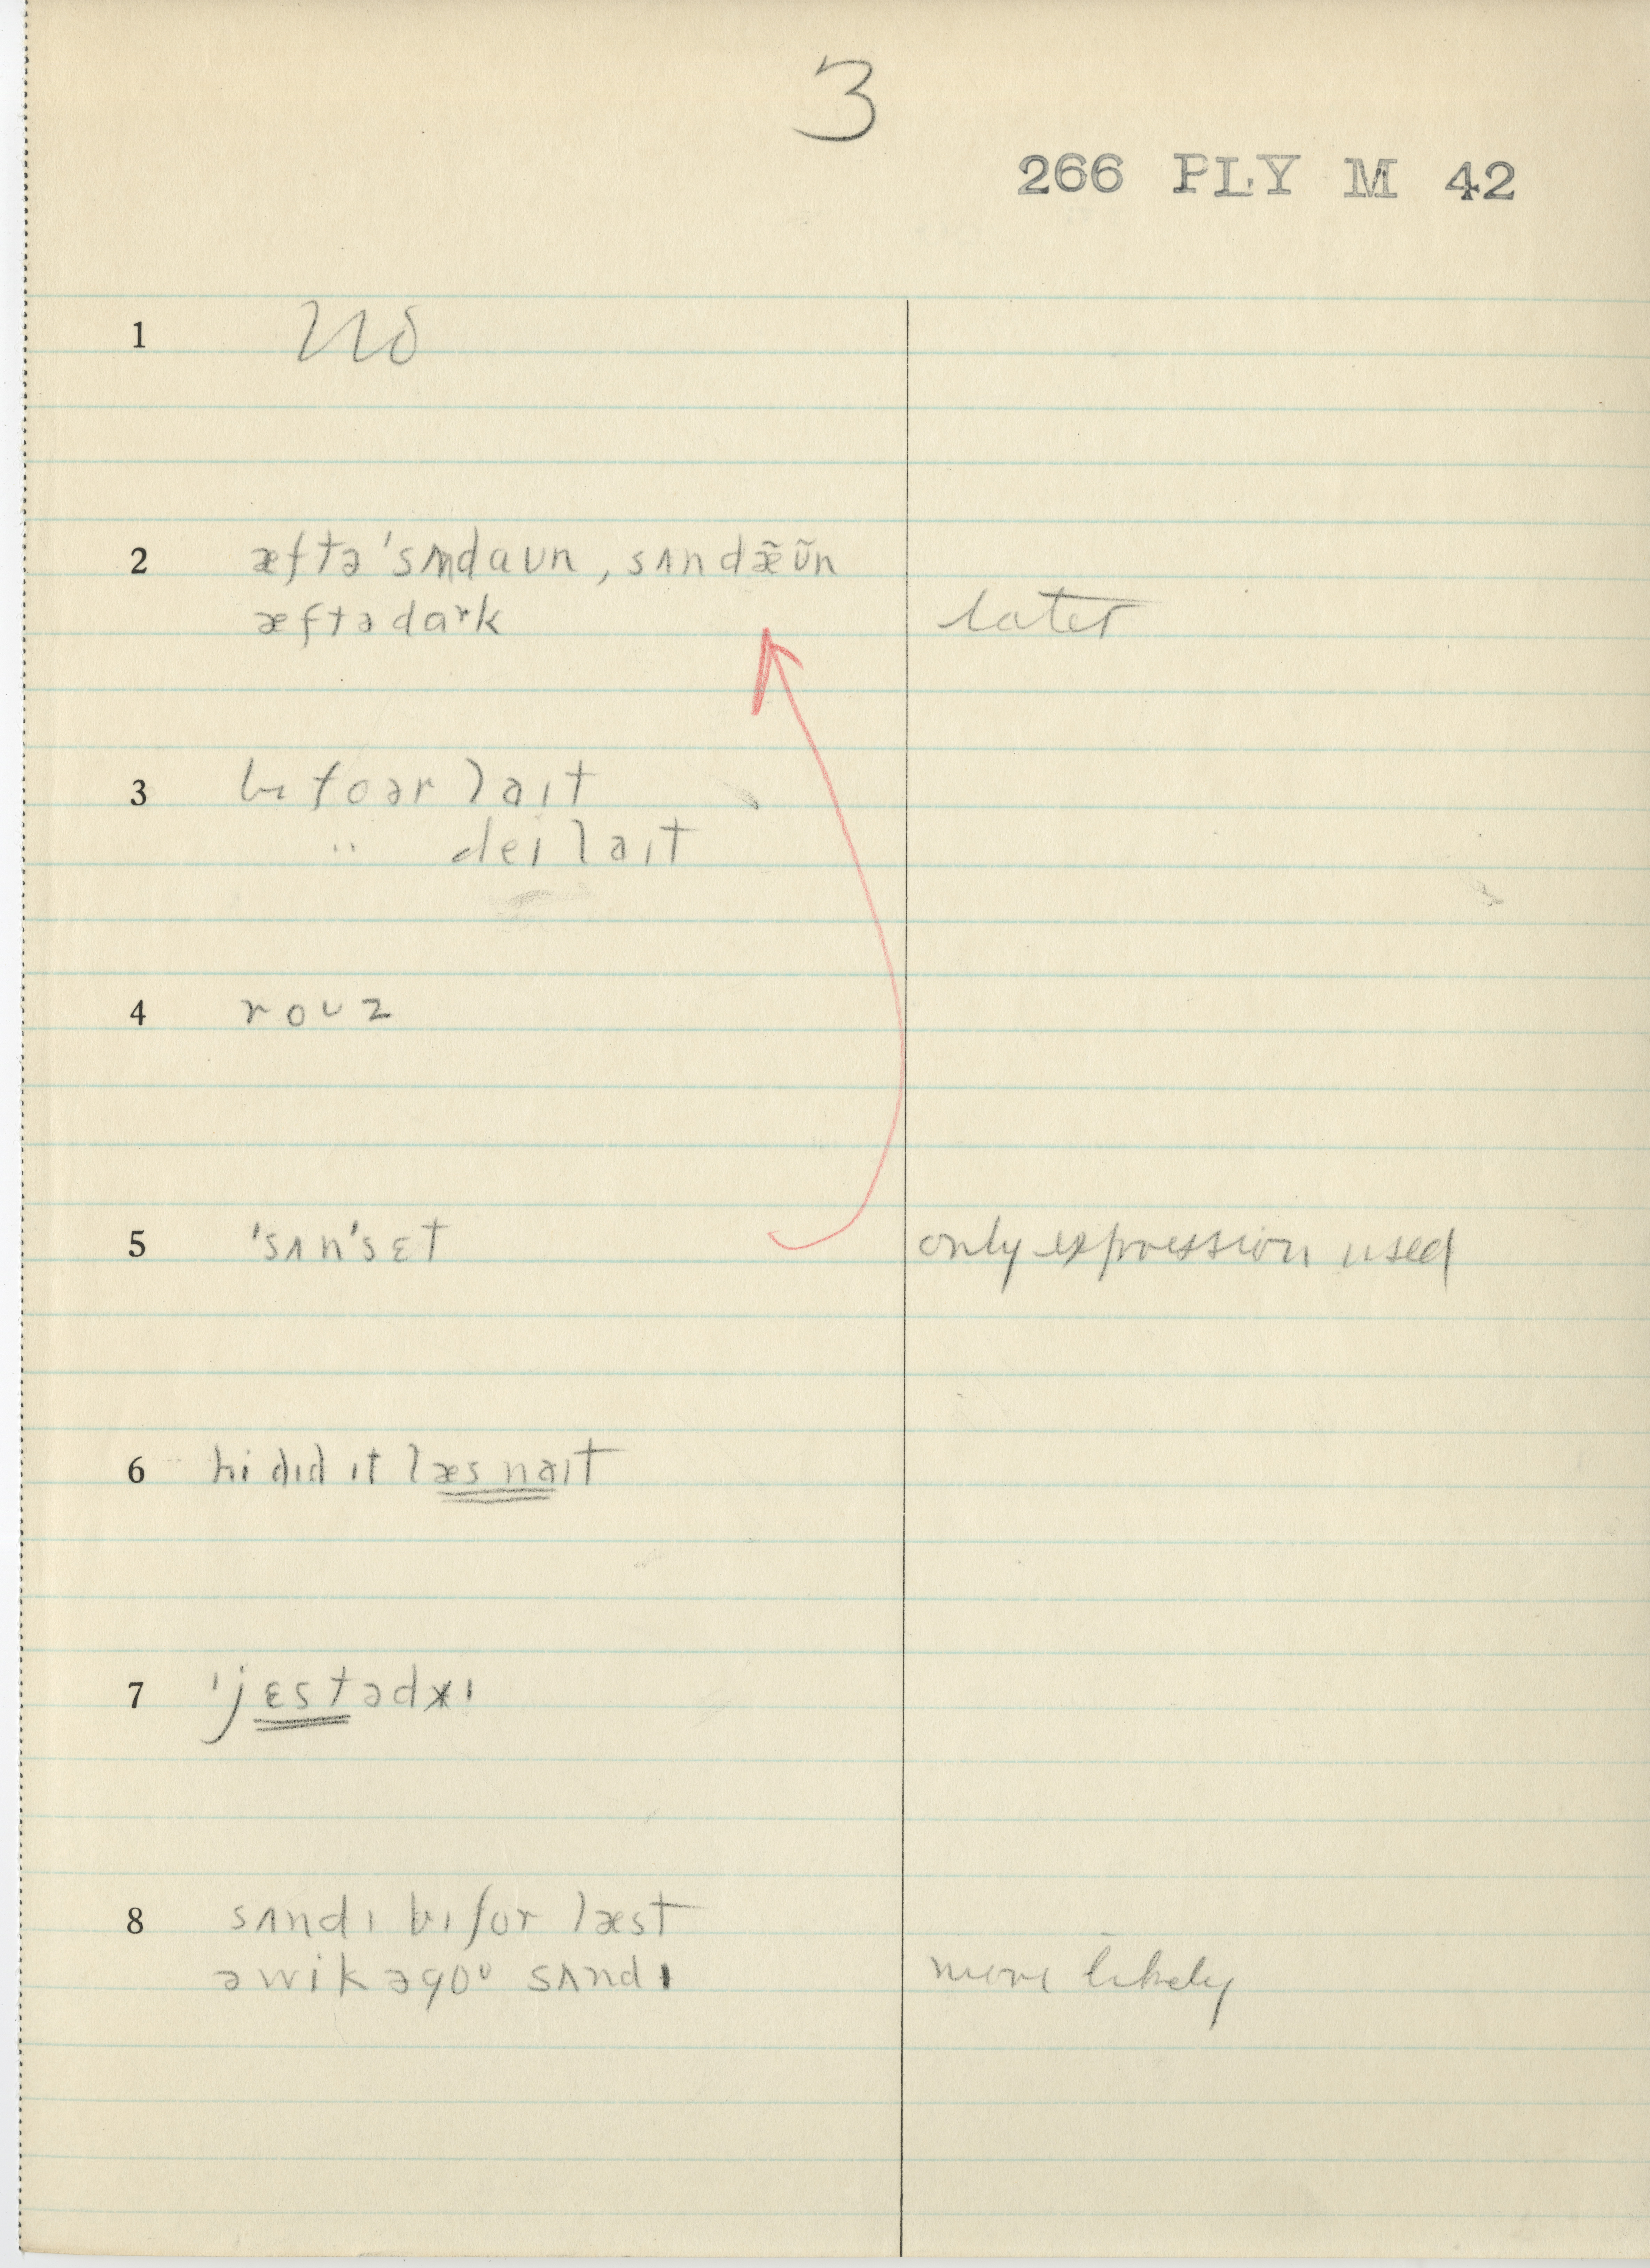 3
266 PLY M 42
1 no
2 æftə 'sʌndaʊn, sʌndæ̃ʊ̃n
æftədaʳk later
3 bɪfoər laɪt
" deɪlaɪt
4 roʊz
5 'sʌn'sɛt only expression used
6 hi dɪd ɪt læs naɪt
7 'jɛstədɪ
8 sʌndɪ bɪfor læst
əwikəgoᶷ sʌndɪ more likely